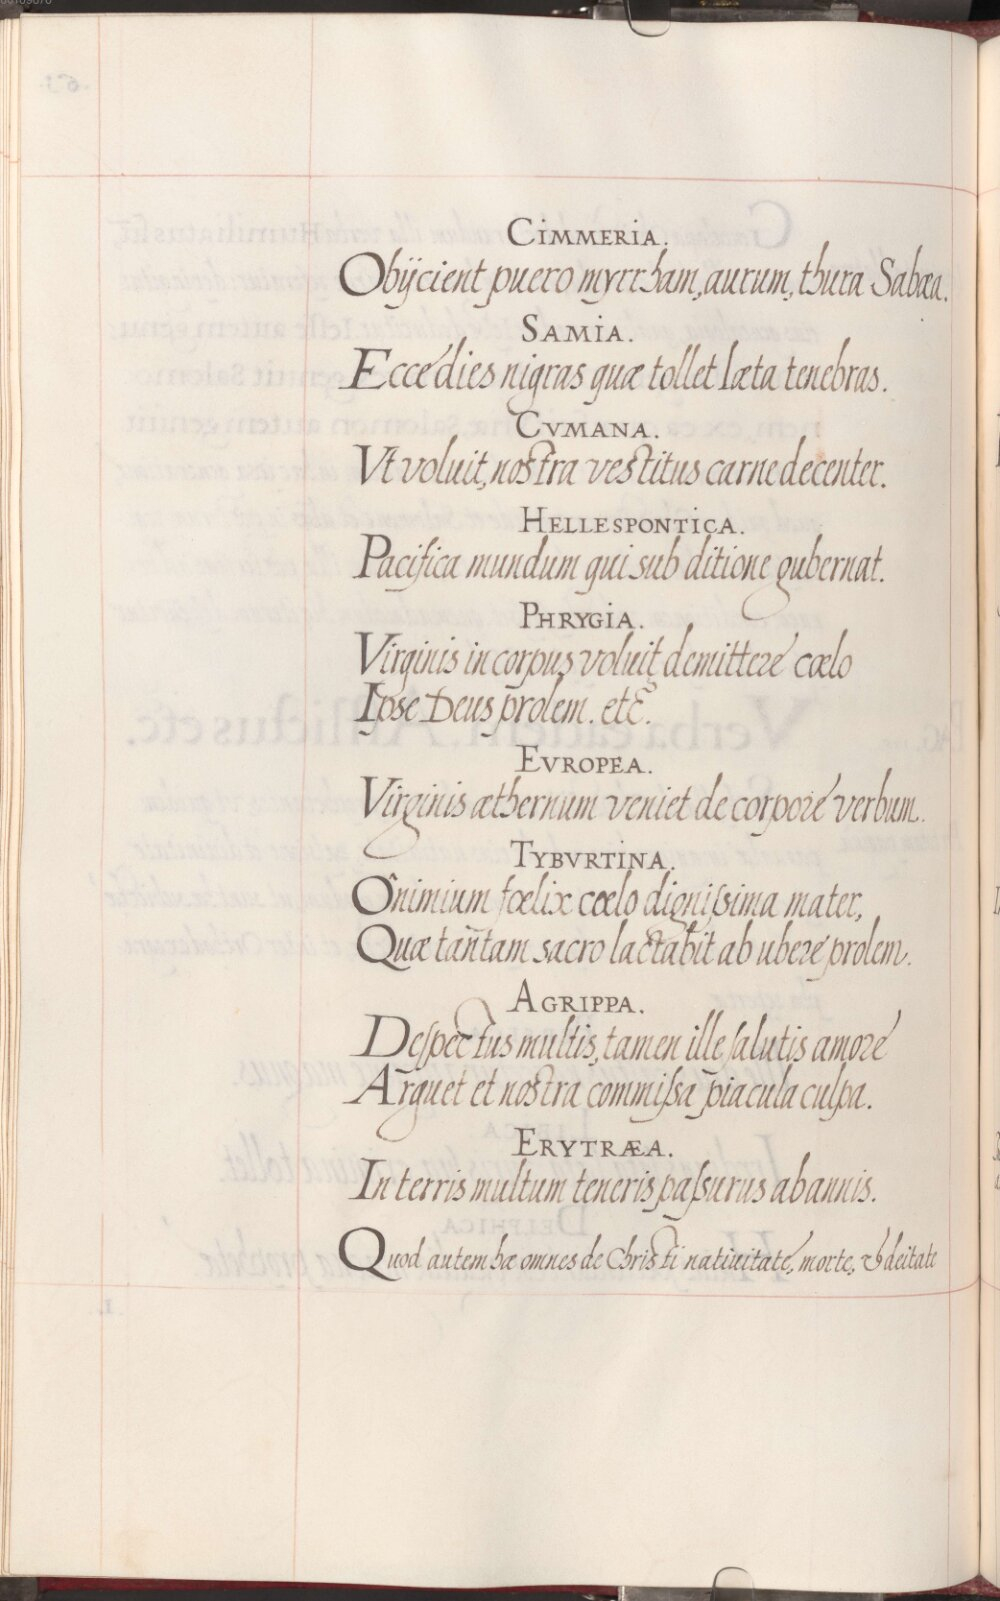 CIMMERIA.
Obijcient puero myrrham, aurum, thura Sabæa.
SAMIA.
Ecce dies nigras quæ tollet læta tenebras.
CVMANA.
Vt voluit, nostra vestitus carne decenter.
HELLESPONTICA.
Pacifica mundum qui sub ditione gubernat.
PHRYGIA.
Virginis in corpus voluit demittere cœlo
Ipse Deus prolem. etc̃.
EVROPEA.
Virginis æthernum veniet de corpore verbum.
TYBVRTINA.
Ô nimium fœlix cœlo dignißima mater,
Quæ tantam sacro lactabit ab ubere prolem.
AGRIPPA.
Despectus multis, tamen ille salutis amore
Arguet et nostra commißa piacula culpa.
ERYTRÆA.
In terris multum teneris paßurus ab annis.
Quod autem hæ omnes de Christi natiuitate, morte, & deitate